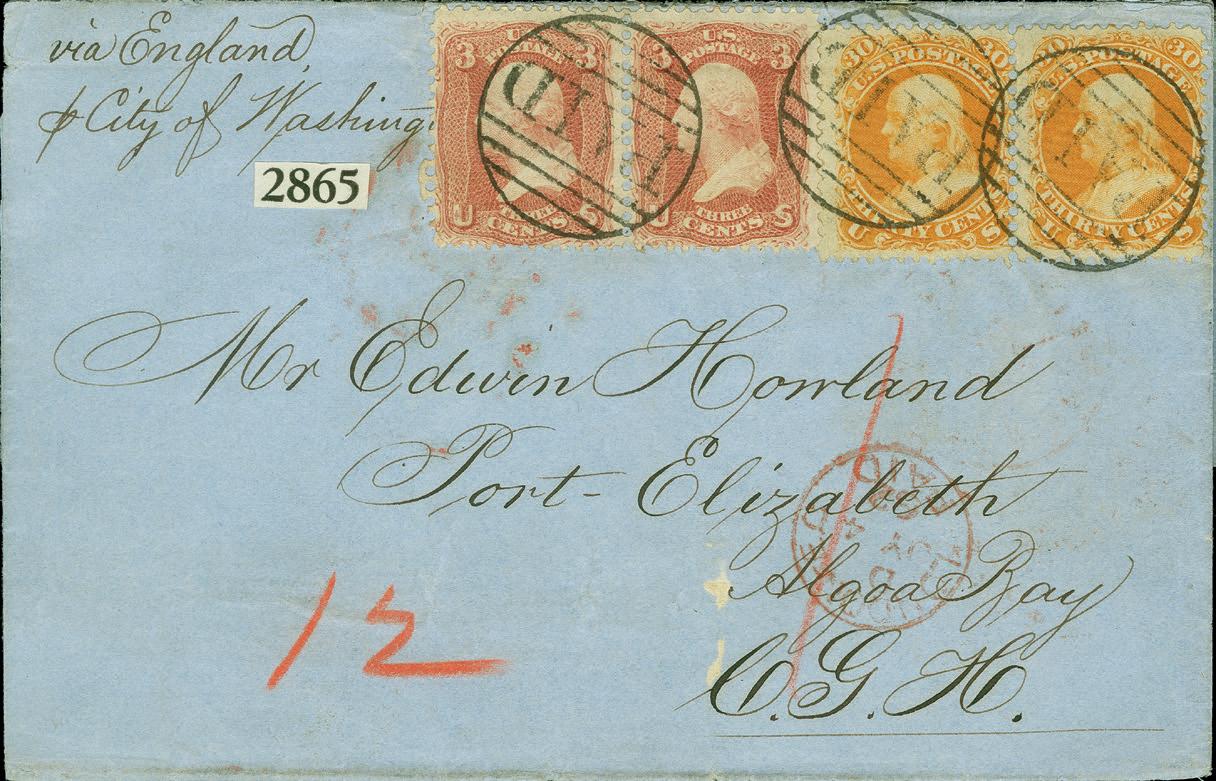 via England,
℘ City of Washing
2865
3 U.S. 3
POSTAGE
THREE
U CENTS S
3 U.S. 3
POSTAGE
THREE
U CENTS S
30 30
U.S. POSTAGE
THIRTY CENTS
U S
30 30
U.S. POSTAGE
THIRTY CENTS
U S
PAID
PAID
PAID
PAID
Mr Edwin Howland
Port-Elizabeth
Algoa Bay
C.G.H.
12
1
PAID